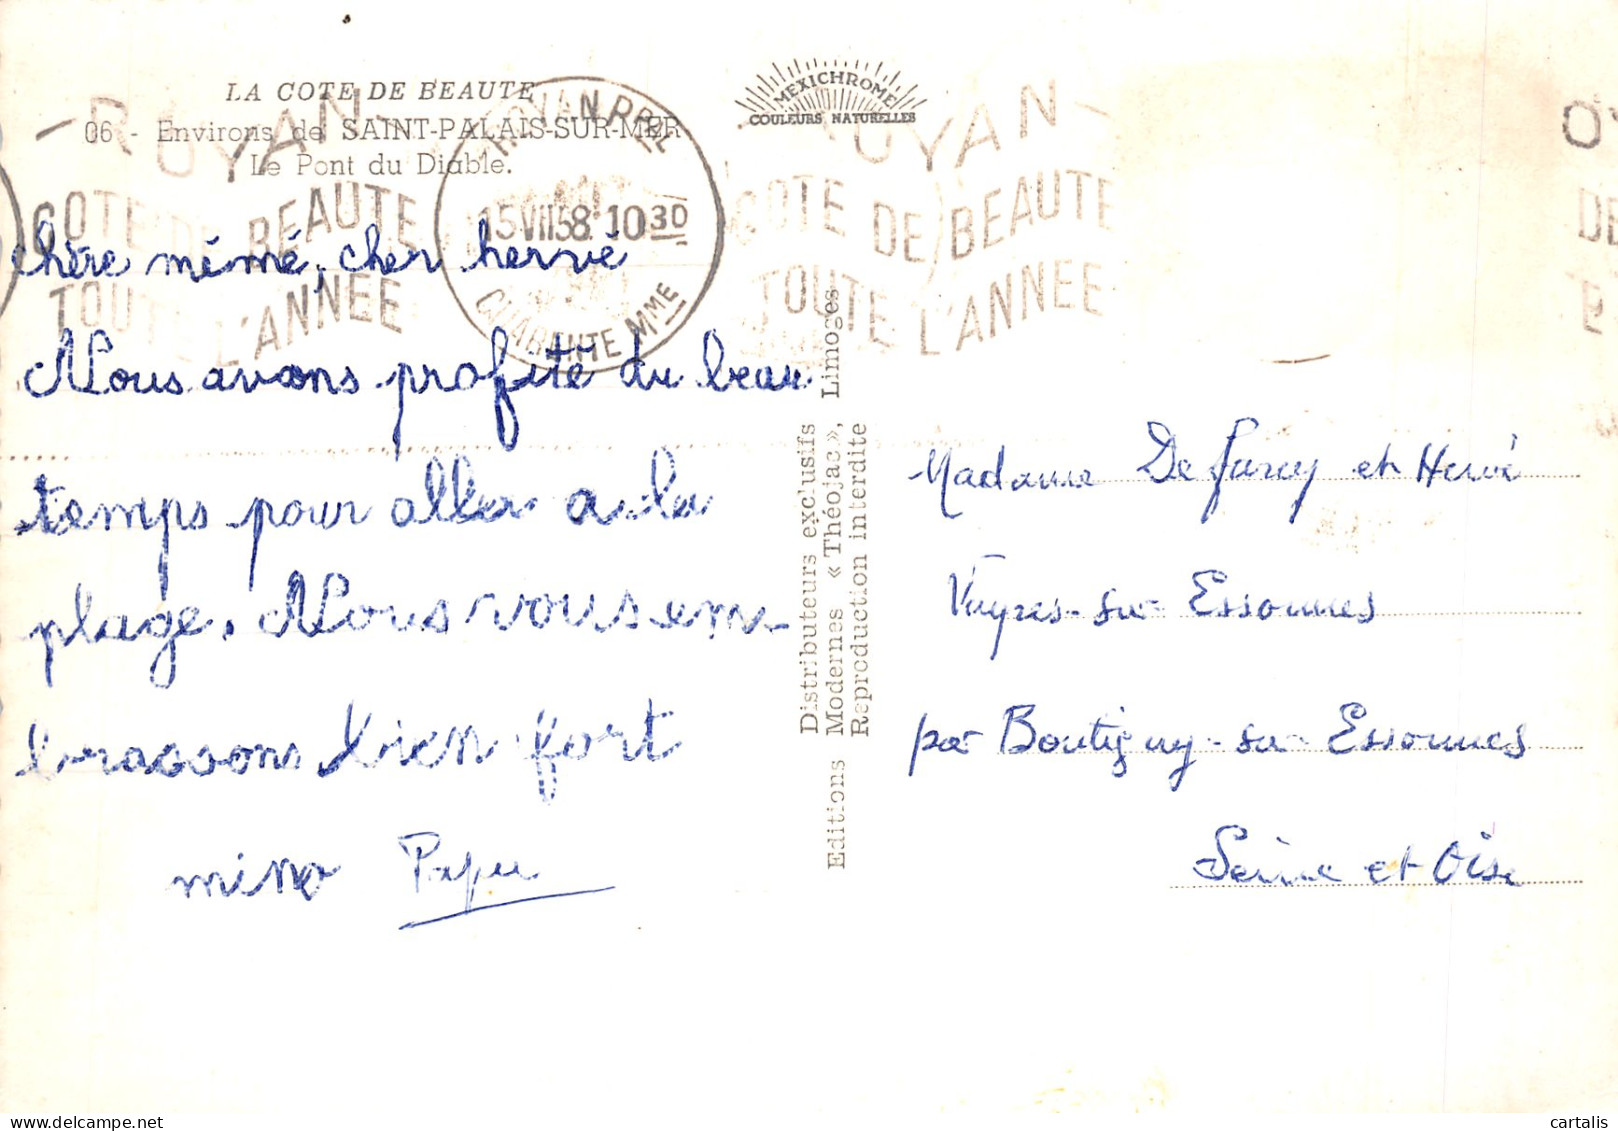 LA COTE DE BEAUTE
06 - Environs de SAINT-PALAIS-SUR-MER
Le Pont du Diable.
MEXICHROME
COULEURS NATURELLES
- ROYAN -
COTE DE BEAUTE
TOUTE L'ANNEE
ROYAN PPAL
15 VII 58. 10 30
CHARENTE MME
- ROYAN -
COTE DE BEAUTE
TOUTE L'ANNEE
chère mémé, cher hervé
Nous avons profité du beau
temps pour aller a la
plage. Nous vous em-
brassons bien fort
mino Papu
Distributeurs exclusifs
Editions Modernes « Théojac », Limoges
Reproduction interdite
Madame De Furcy et Hervé
Vayres-sur-Essonnes
par Boutigny-sur-Essonnes
Seine et Oise
cartalis